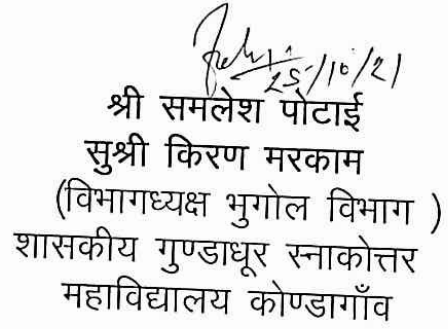 25/10/21
श्री समलेश पोटाई
सुश्री किरण मरकाम
(विभागध्यक्ष भुगोल विभाग )
शासकीय गुण्डाधूर स्नाकोत्तर
महाविद्यालय कोण्डागाँव